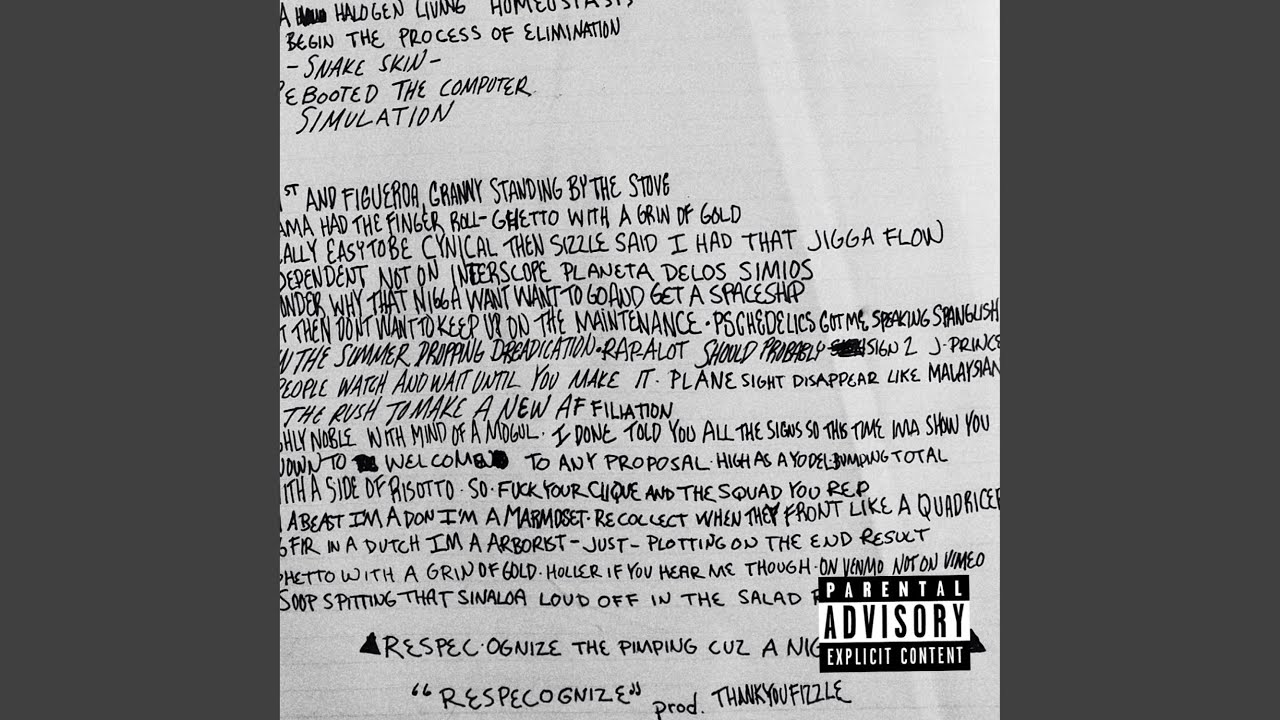 A HALOGEN LIVING HOMEOSTASIS
BEGIN THE PROCESS OF ELIMINATION
- SNAKE SKIN -
REBOOTED THE COMPUTER
SIMULATION
1ST AND FIGUEROA, GRANNY STANDING BY THE STOVE
AMA HAD THE FINGER ROLL - GHETTO WITH A GRIN OF GOLD
ALLY EASY TO BE CYNICAL THEN SIZZLE SAID I HAD THAT JIGGA FLOW
DEPENDENT NOT ON INTERSCOPE PLANETA DELOS SIMIOS
ONDER WHY THAT NIGGA WANT WANT TO GO AND GET A SPACESHIP
T THEN DONT WANT TO KEEP UP ON THE MAINTENANCE · PSCHEDELICS GOT ME SPEAKING SPANGLISH
THE SUMMER DROPPING DREADICATION · RAP-ALOT SHOULD PROBABLY SIGN 2 J-PRINCE
PEOPLE WATCH AND WAIT UNTIL YOU MAKE IT · PLANE SIGHT DISAPPEAR LIKE MALAYSIAN
THE RUSH TO MAKE A NEW AFFILIATION
GHLY NOBLE WITH MIND OF A MOGUL · I DONE TOLD YOU ALL THE SIGNS SO THIS TIME IMA SHOW YOU
DOWN TO WELCOME TO ANY PROPOSAL · HIGH AS A YODEL · BUMPING TOTAL
ITH A SIDE OF RISOTTO · SO · FUCK YOUR CLIQUE AND THE SQUAD YOU REP
A BEAST IM A DON I'M A MARMOSET · RECOLLECT WHEN THEY FRONT LIKE A QUADRICEP
FIR IN A DUTCH IM A ARBORIST - JUST - PLOTTING ON THE END RESULT
GHETTO WITH A GRIN OF GOLD · HOLLER IF YOU HEAR ME THOUGH · ON VENMO NOT ON VIMEO
SOOP SPITTING THAT SINALOA LOUD OFF IN THE SALAD
RESPEC · OGNIZE THE PIMPING CUZ A NIG
"RESPECOGNIZE" prod. THANKYOUFIZZLE
PARENTAL
ADVISORY
EXPLICIT CONTENT